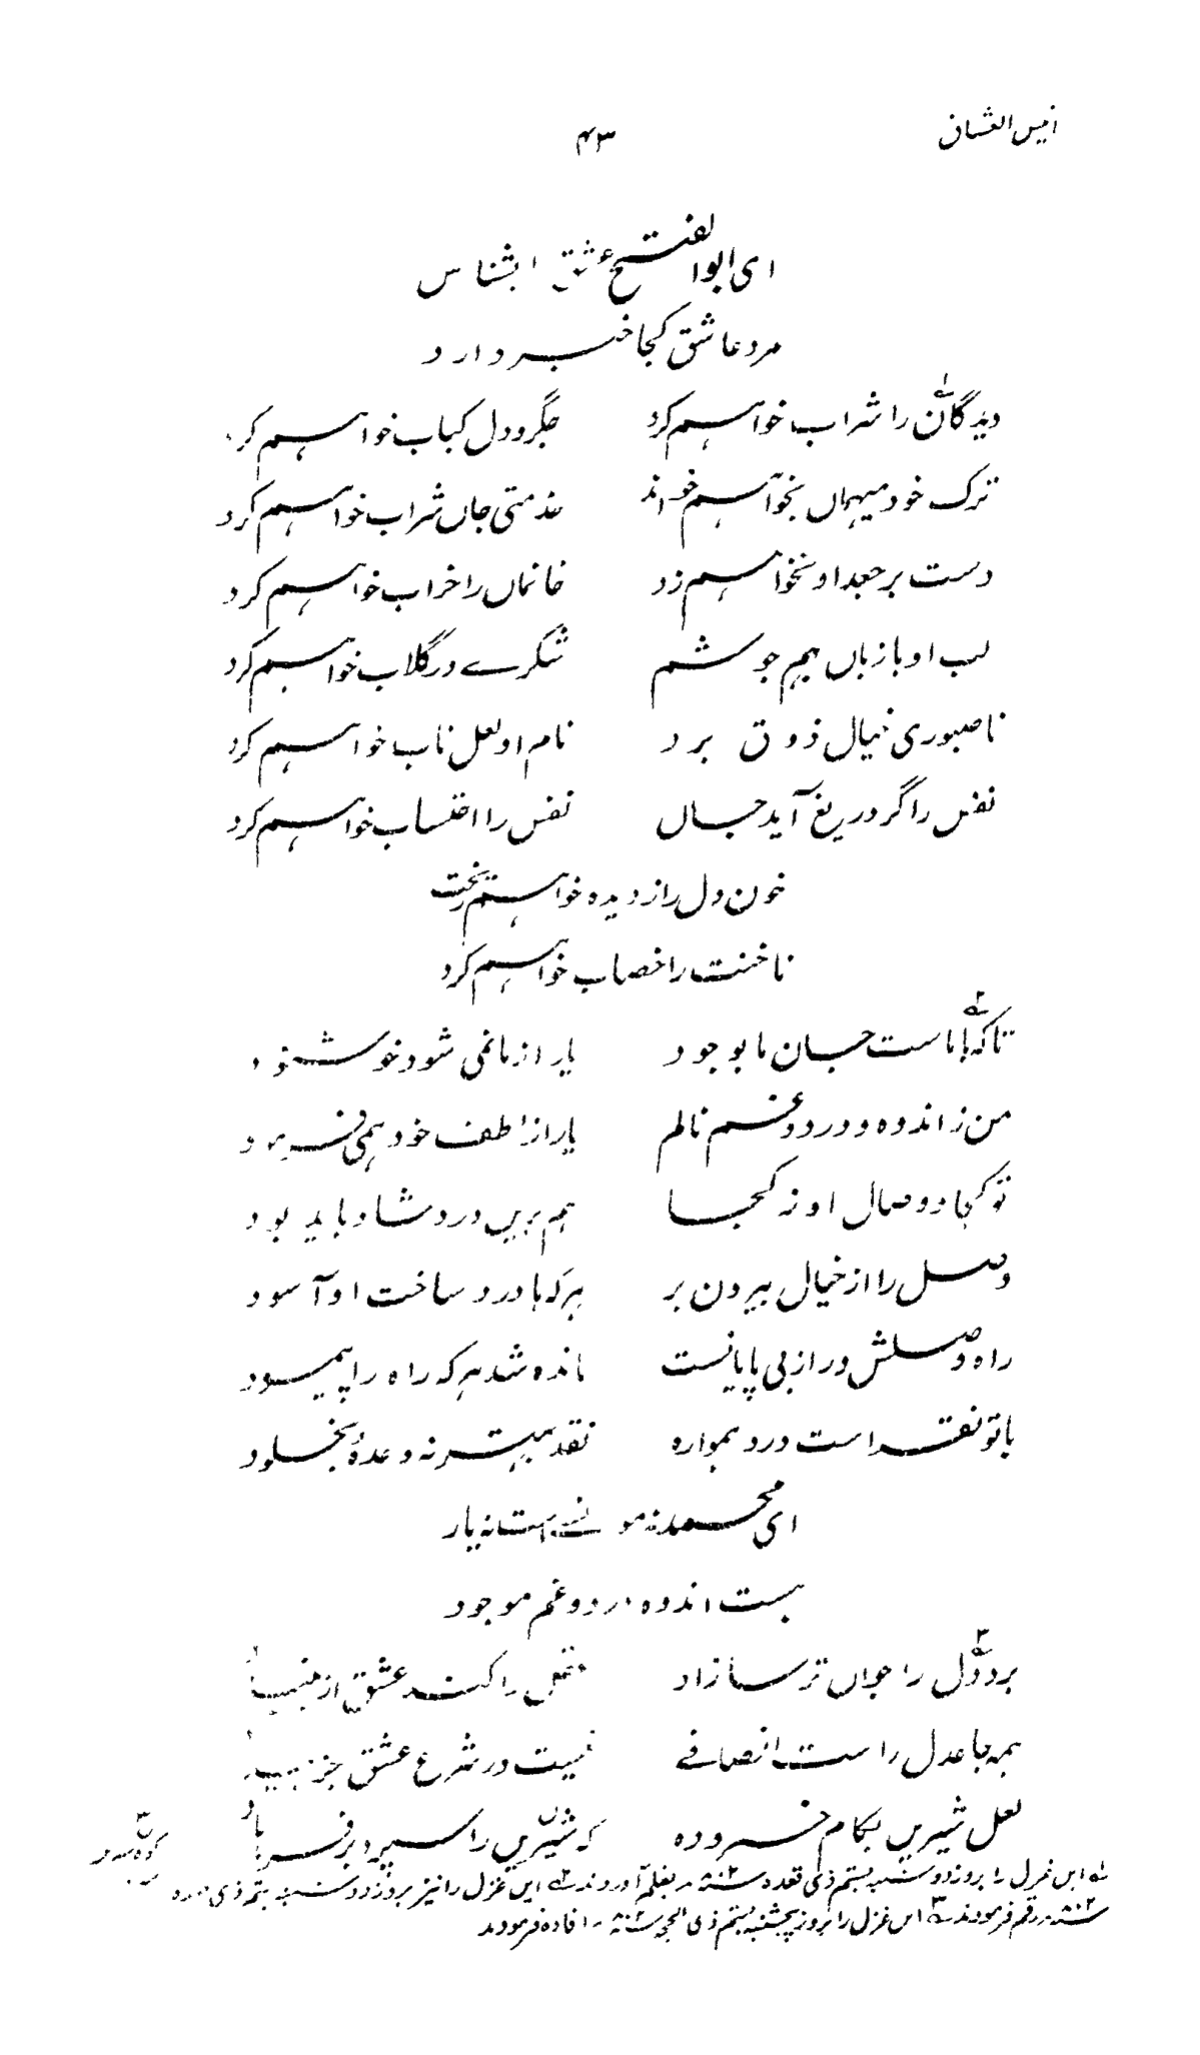 انیس العشاق
۴۳
ای ابوالفتح عشق بشناس
مرد عاشق کجا خبر دارد
دیدگان را شراب خواهم کرد جگر و دل کباب خواهم کرد
ترک خود میهماں نخواهم خواند خدمتی جاں شراب خواهم کرد
دست بر جعد او نخواهم زد خانماں را خراب خواهم کرد
لب او با زباں بهم جوشم شکرے در گلاب خواهم کرد
ناصبوری خیال ذوق برد نام او لعل ناب خواهم کرد
نفس را گر دریغ آید جاں نفس را احتساب خواهم کرد
خون دل را ز دیده خواهم ریخت
ناخنت را خصاب خواهم کرد
تا که با ماست جان ما بوجود یار از ما نمی شود خوشنود
من ز اندوه و درد و غم نالم یار از لطف خود همی فرمود
تو کجا و وصال او ز کجا هم بریں درد شاد باید بود
وصل را از خیال بیرون بر هرکه با درد ساخت او آسود
راه وصلش دراز بی پایانست مانده شد هرکه راه را پیمود
با تو نقد است درد همواره نقد بهتر نه وعدهٔ بخلود
ای محمد نه مونس است نه یار
هست اندوه درد و غم موجود
برد دل را جواں ترسا زاد عقل را کند عشق از بنیاد
همه جا عدل راست انصافے نیست در شرع عشق جز بیداد
لعل شیریں بکام خسرو ده که شیریں را سپرد بر فرهاد
۱ این غزل را بروز دوشنبه بستم ذی قعده سنه ۸۰۲ بقلم آوردند ۲ این غزل را نیز بروز دوشنبه بستم ذی قعده
سنه ۸۰۲ رقم فرمودند ۳ این غزل را بروز پنجشنبه بستم ذی الحجه سنه ۸۰۲ افاده فرمودند